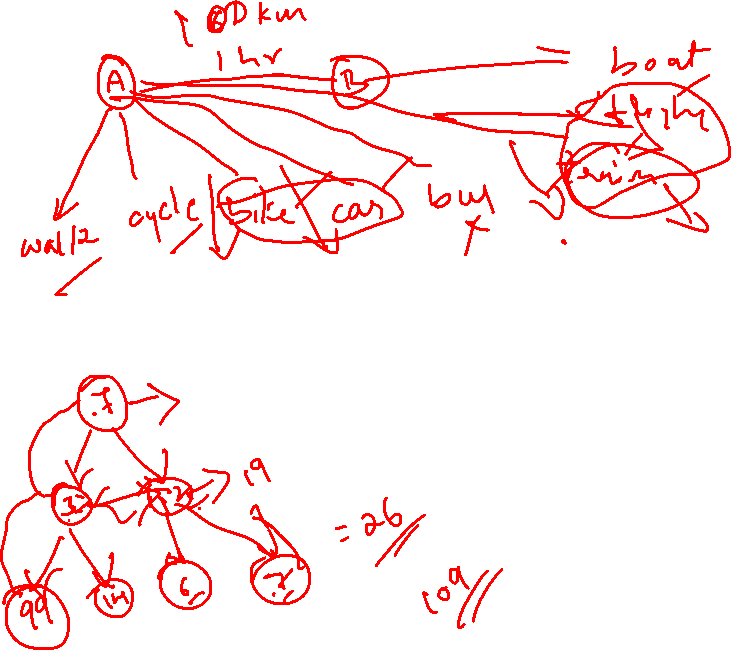 60 km
1 hr
A
B
boat
flight
train
walk
cycle
bike
car
bus
x
7
3
12
19
99
14
6
7
= 26
109